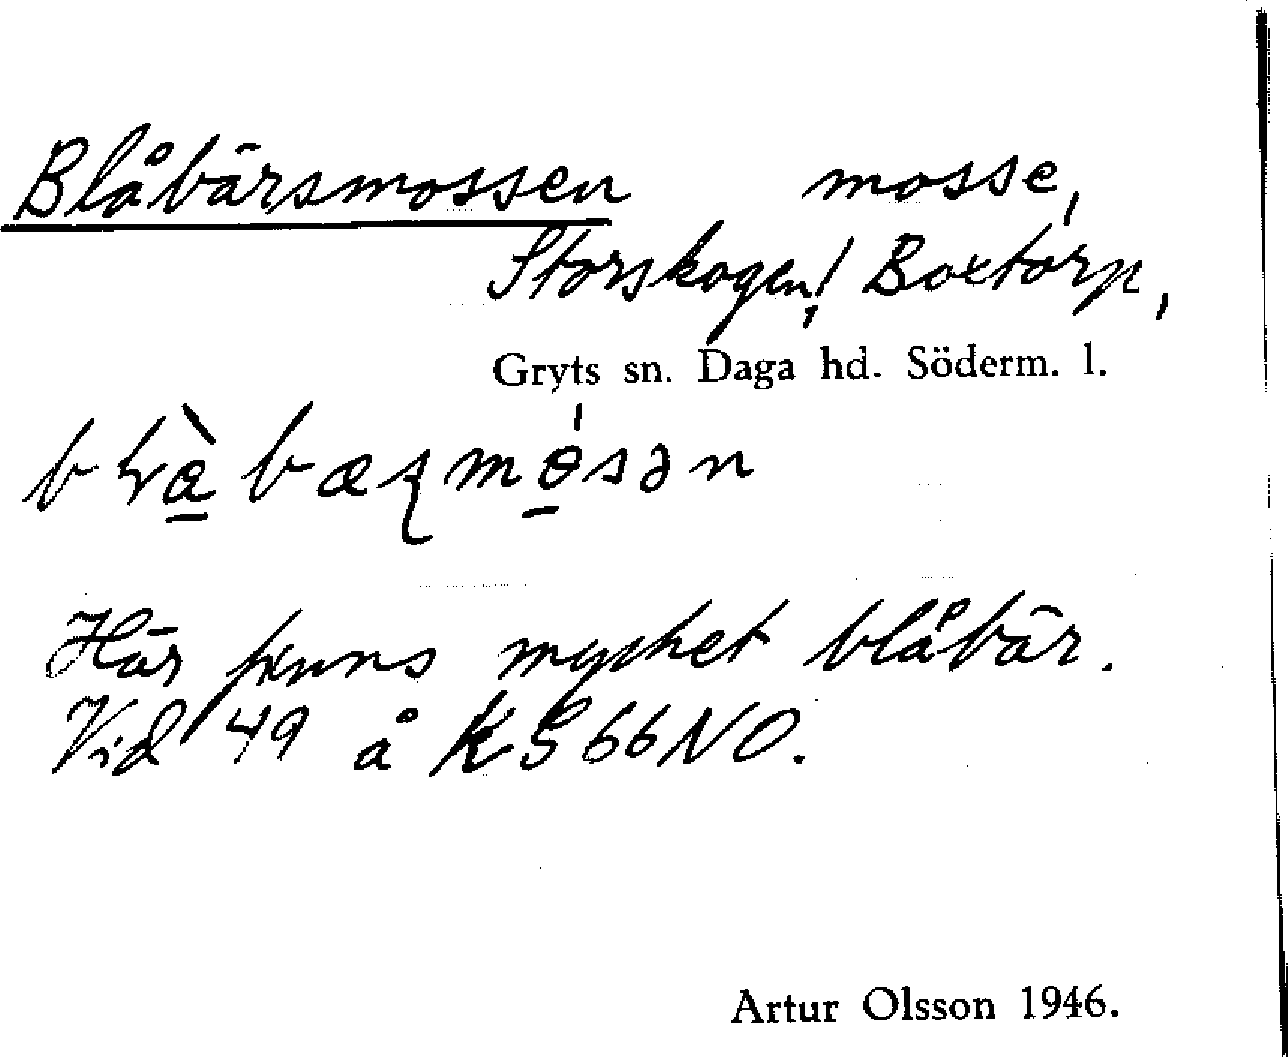 Blåbärsmossen mosse,
Storskogen, Boxtorp,
Gryts sn. Daga hd. Söderm. l.
Här finns mycket blåbär.
Vid 49 å KS 66 NO.
Artur Olsson 1946.